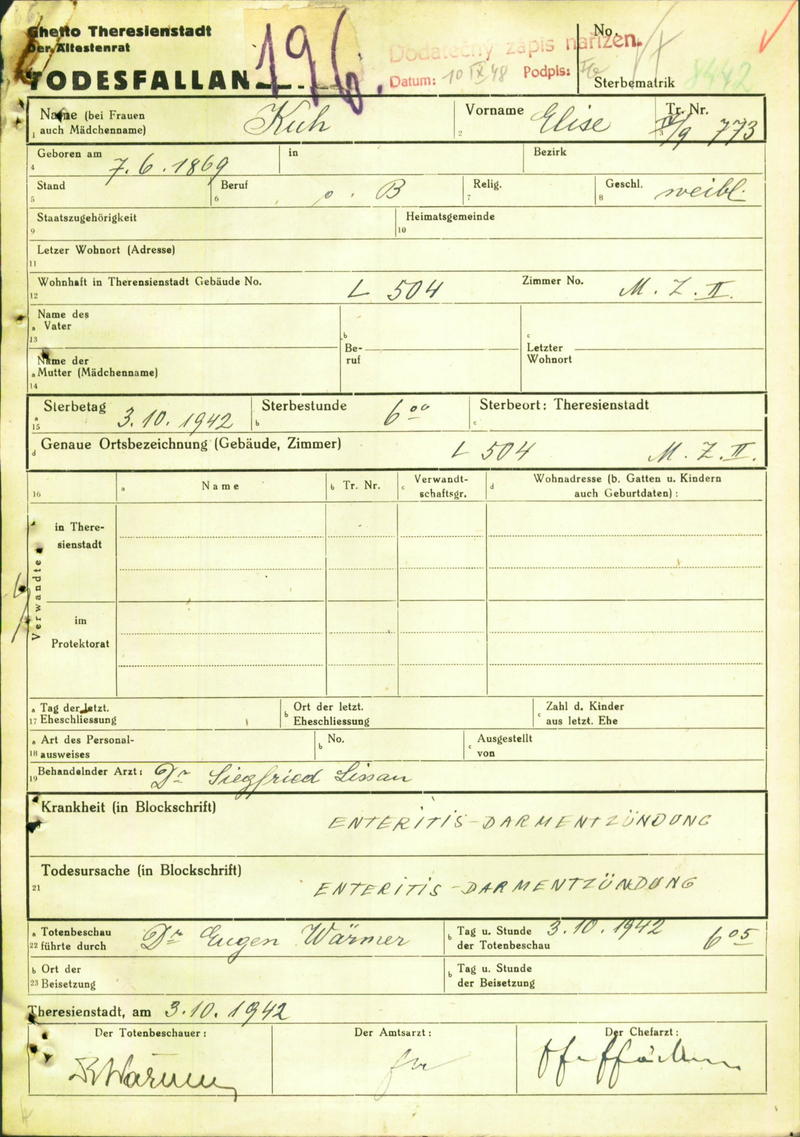 Ghetto Theresienstadt
Der Ältestenrat
TODESFALLAN
196.
Dodatečný zápis nařízen.
Datum: 10 IX 48 Podpis:
No.
Sterbematrik 8442
Name (bei Frauen auch Mädchenname) Kuh
1
Vorname Elise
2
Tr. Nr. IV/9 773
3
Geboren am 7.6.1869
4
in
Bezirk
Stand
5
Beruf o. B
6
Relig.
7
Geschl. weibl.
8
Staatszugehörigkeit
9
Heimatsgemeinde
10
Letzer Wohnort (Adresse)
11
Wohnhaft in Therensienstadt Gebäude No. L 504 Zimmer No. M. Z. II.
12
Name des
a Vater
13
b
Be-
ruf
c
Letzter
Wohnort
Name der
a Mutter (Mädchenname)
14
a Sterbetag 3.10.1942
15
b Sterbestunde 6 00
c Sterbeort: Theresienstadt
d Genaue Ortsbezeichnung (Gebäude, Zimmer) L 504 M. Z. II.
16
a Name
b Tr. Nr.
c Verwandt-
schaftsgr.
d Wohnadresse (b. Gatten u. Kindern
auch Geburtdaten) :
Verwandte
in There-
sienstadt
im
Protektorat
a Tag der letzt.
17 Eheschliessung
b Ort der letzt.
Eheschliessung
c Zahl d. Kinder
aus letzt. Ehe
a Art des Personal-
18 ausweises
b No.
c Ausgestellt
von
19 Behandelnder Arzt: Dr Siegfried Lissau
Krankheit (in Blockschrift)
ENTERITIS-DARMENTZÜNDUNG
Todesursache (in Blockschrift)
21
ENTERITIS-DARMENTZÜNDUNG
a Totenbeschau
22 führte durch Dr Eugen Wärmer
b Tag u. Stunde
der Totenbeschau 3.10.1942 6 05
b Ort der
23 Beisetzung
b Tag u. Stunde
der Beisetzung
Theresienstadt, am 3.10.1942
Der Totenbeschauer :
Der Amtsarzt :
Der Chefarzt :